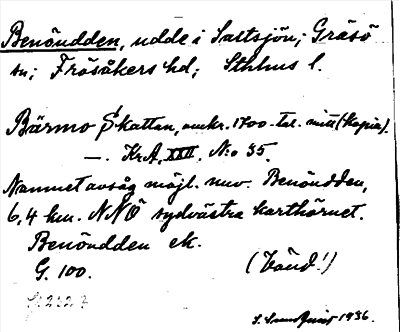 Benöudden, udde i Saltsjön; Gräsö
sn; Frösåkers hd; Sthlms l.
Bärmö Skattan, omkr. 1700-tal. mitt (kopia).
—. Kr.A. XXII. N:o 35.
Namnet avsåg möjl. nuv. Benöudden,
6,4 km. NNÖ sydvästra karthörnet.
Benöudden ek.
G. 100. (Vänd!)
1936.